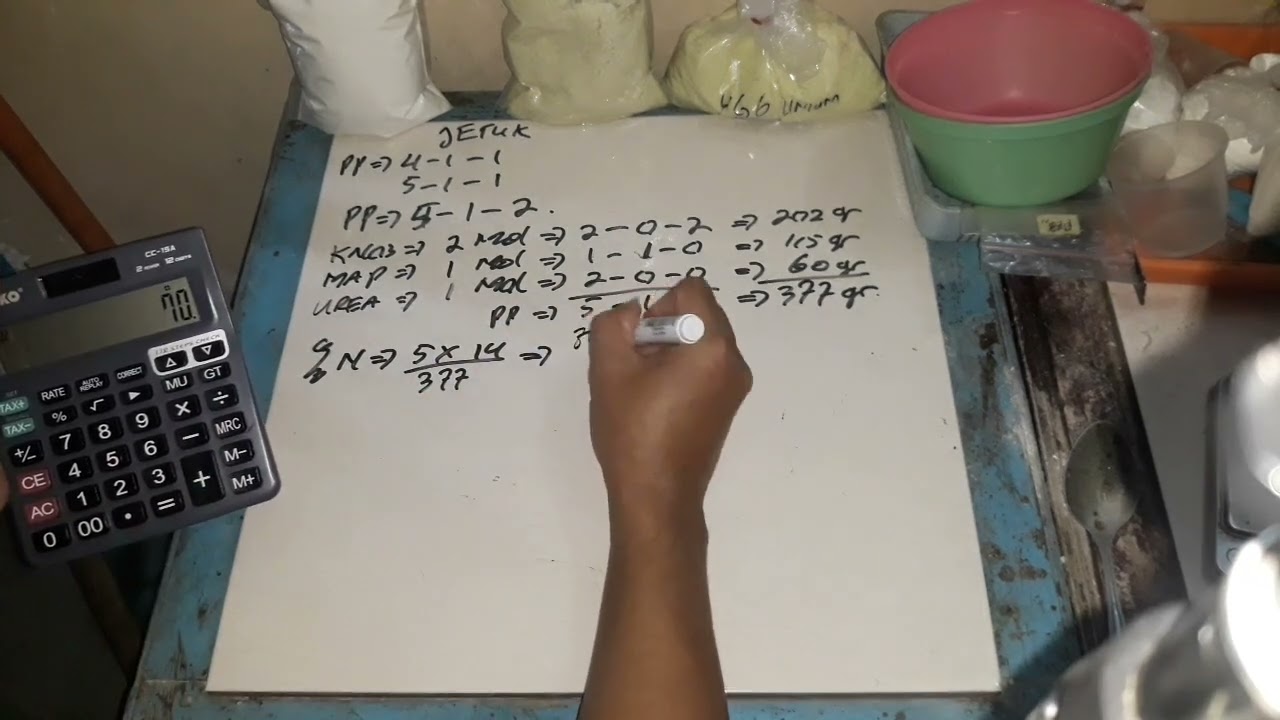 UGG Umum
JETUK
PP => 4-1-1
5-1-1
PP => 5-1-2.
KNO3 => 2 Mol => 2-0-2 => 202 gr
MAP => 1 Mol => 1-1-0 => 115 gr
UREA => 1 Mol => 2-0-0 => 60 gr
PP => 5-1 => 377 gr.
% N => 5 x 14 =>
377
CC-15A
70.
RATE AUTO REPLAY CORRECT MU GT
TAX+ % √ ► × ÷
TAX- 7 8 9 − MRC
+/- 4 5 6 + M-
CE 1 2 3 = M+
AC 0 00 •